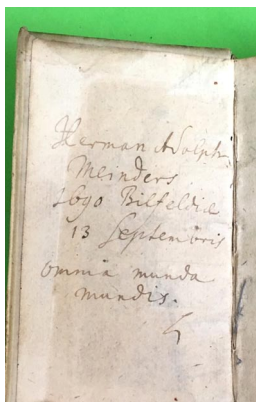 Herman Adolph
Meinders
1690 Bilfeldiæ
13 Septembris
omnia munda
mundis.